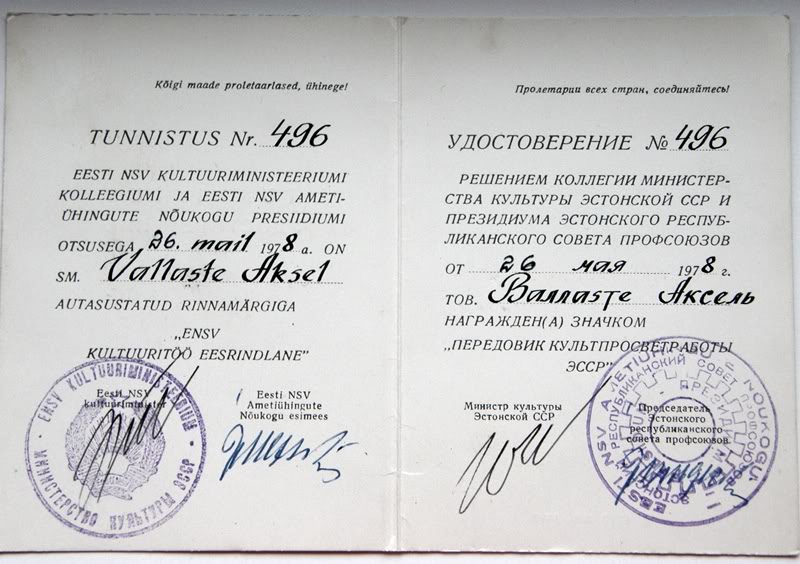 Kõigi maade proletaarlased, ühinege!
TUNNISTUS Nr. 496
EESTI NSV KULTUURIMINISTEERIUMI
KOLLEEGIUMI JA EESTI NSV AMETI-
ÜHINGUTE NÕUKOGU PRESIIDIUMI
OTSUSEGA 26. mail 1978 a. ON
SM. Vallaste Aksel
AUTASUSTATUD RINNAMÄRGIGA
„ENSV
KULTUURITÖÖ EESRINDLANE”
Eesti NSV
kultuuriminister
Eesti NSV
Ametiühingute
Nõukogu esimees
ENSV KULTUURIMINISTEERIUM
МИНИСТЕРСТВО КУЛЬТУРЫ ЭССР
Пролетарии всех стран, соединяйтесь!
УДОСТОВЕРЕНИЕ № 496
РЕШЕНИЕМ КОЛЛЕГИИ МИНИСТЕР-
СТВА КУЛЬТУРЫ ЭСТОНСКОЙ ССР И
ПРЕЗИДИУМА ЭСТОНСКОГО РЕСПУБ-
ЛИКАНСКОГО СОВЕТА ПРОФСОЮЗОВ
ОТ 26 мая 1978 г.
ТОВ. Валласте Аксель
НАГРАЖДЕН(А) ЗНАЧКОМ
„ПЕРЕДОВИК КУЛЬТПРОСВЕТРАБОТЫ
ЭССР”
Министр культуры
Эстонской ССР
Председатель
Эстонского
республиканского
совета профсоюзов
EESTI NSV AMETIÜHINGUTE NÕUKOGU
РЕСПУБЛИКАНСКИЙ СОВЕТ